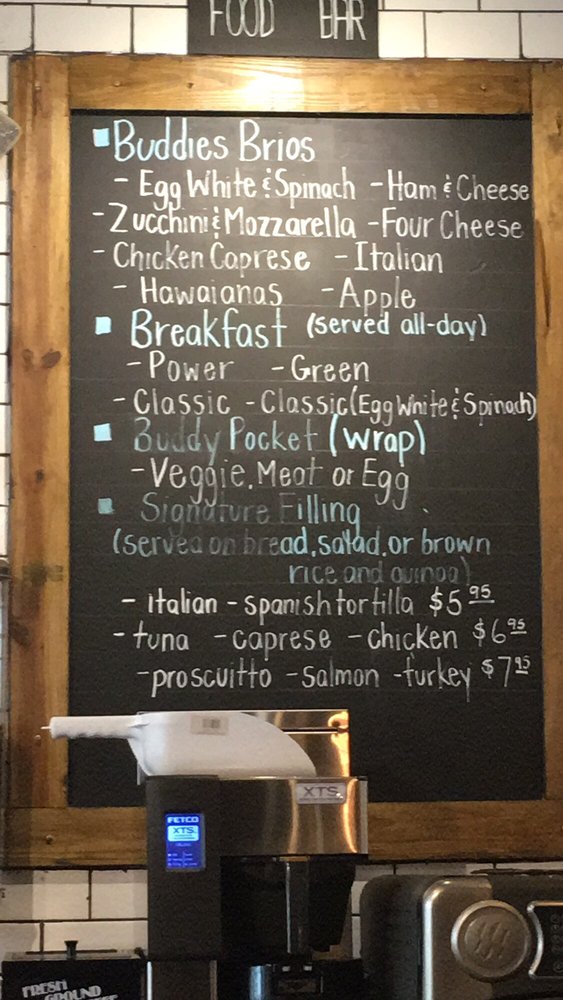 FOOD BAR
Buddies Brios
- Egg White & Spinach - Ham & Cheese
- Zucchini & Mozzarella - Four Cheese
- Chicken Caprese - Italian
- Hawaianas - Apple
Breakfast (served all-day)
- Power - Green
- Classic - Classic (Egg White & Spinach)
Buddy Pocket (wrap)
- Veggie, Meat or Egg
Signature Filling
(served on bread, salad, or brown
rice and quinoa)
- italian - spanish tortilla $5 95
- tuna - caprese - chicken $6 95
- proscuitto - salmon - turkey $7 95
XTS
FETCO
XTS
FRESH
GROUND